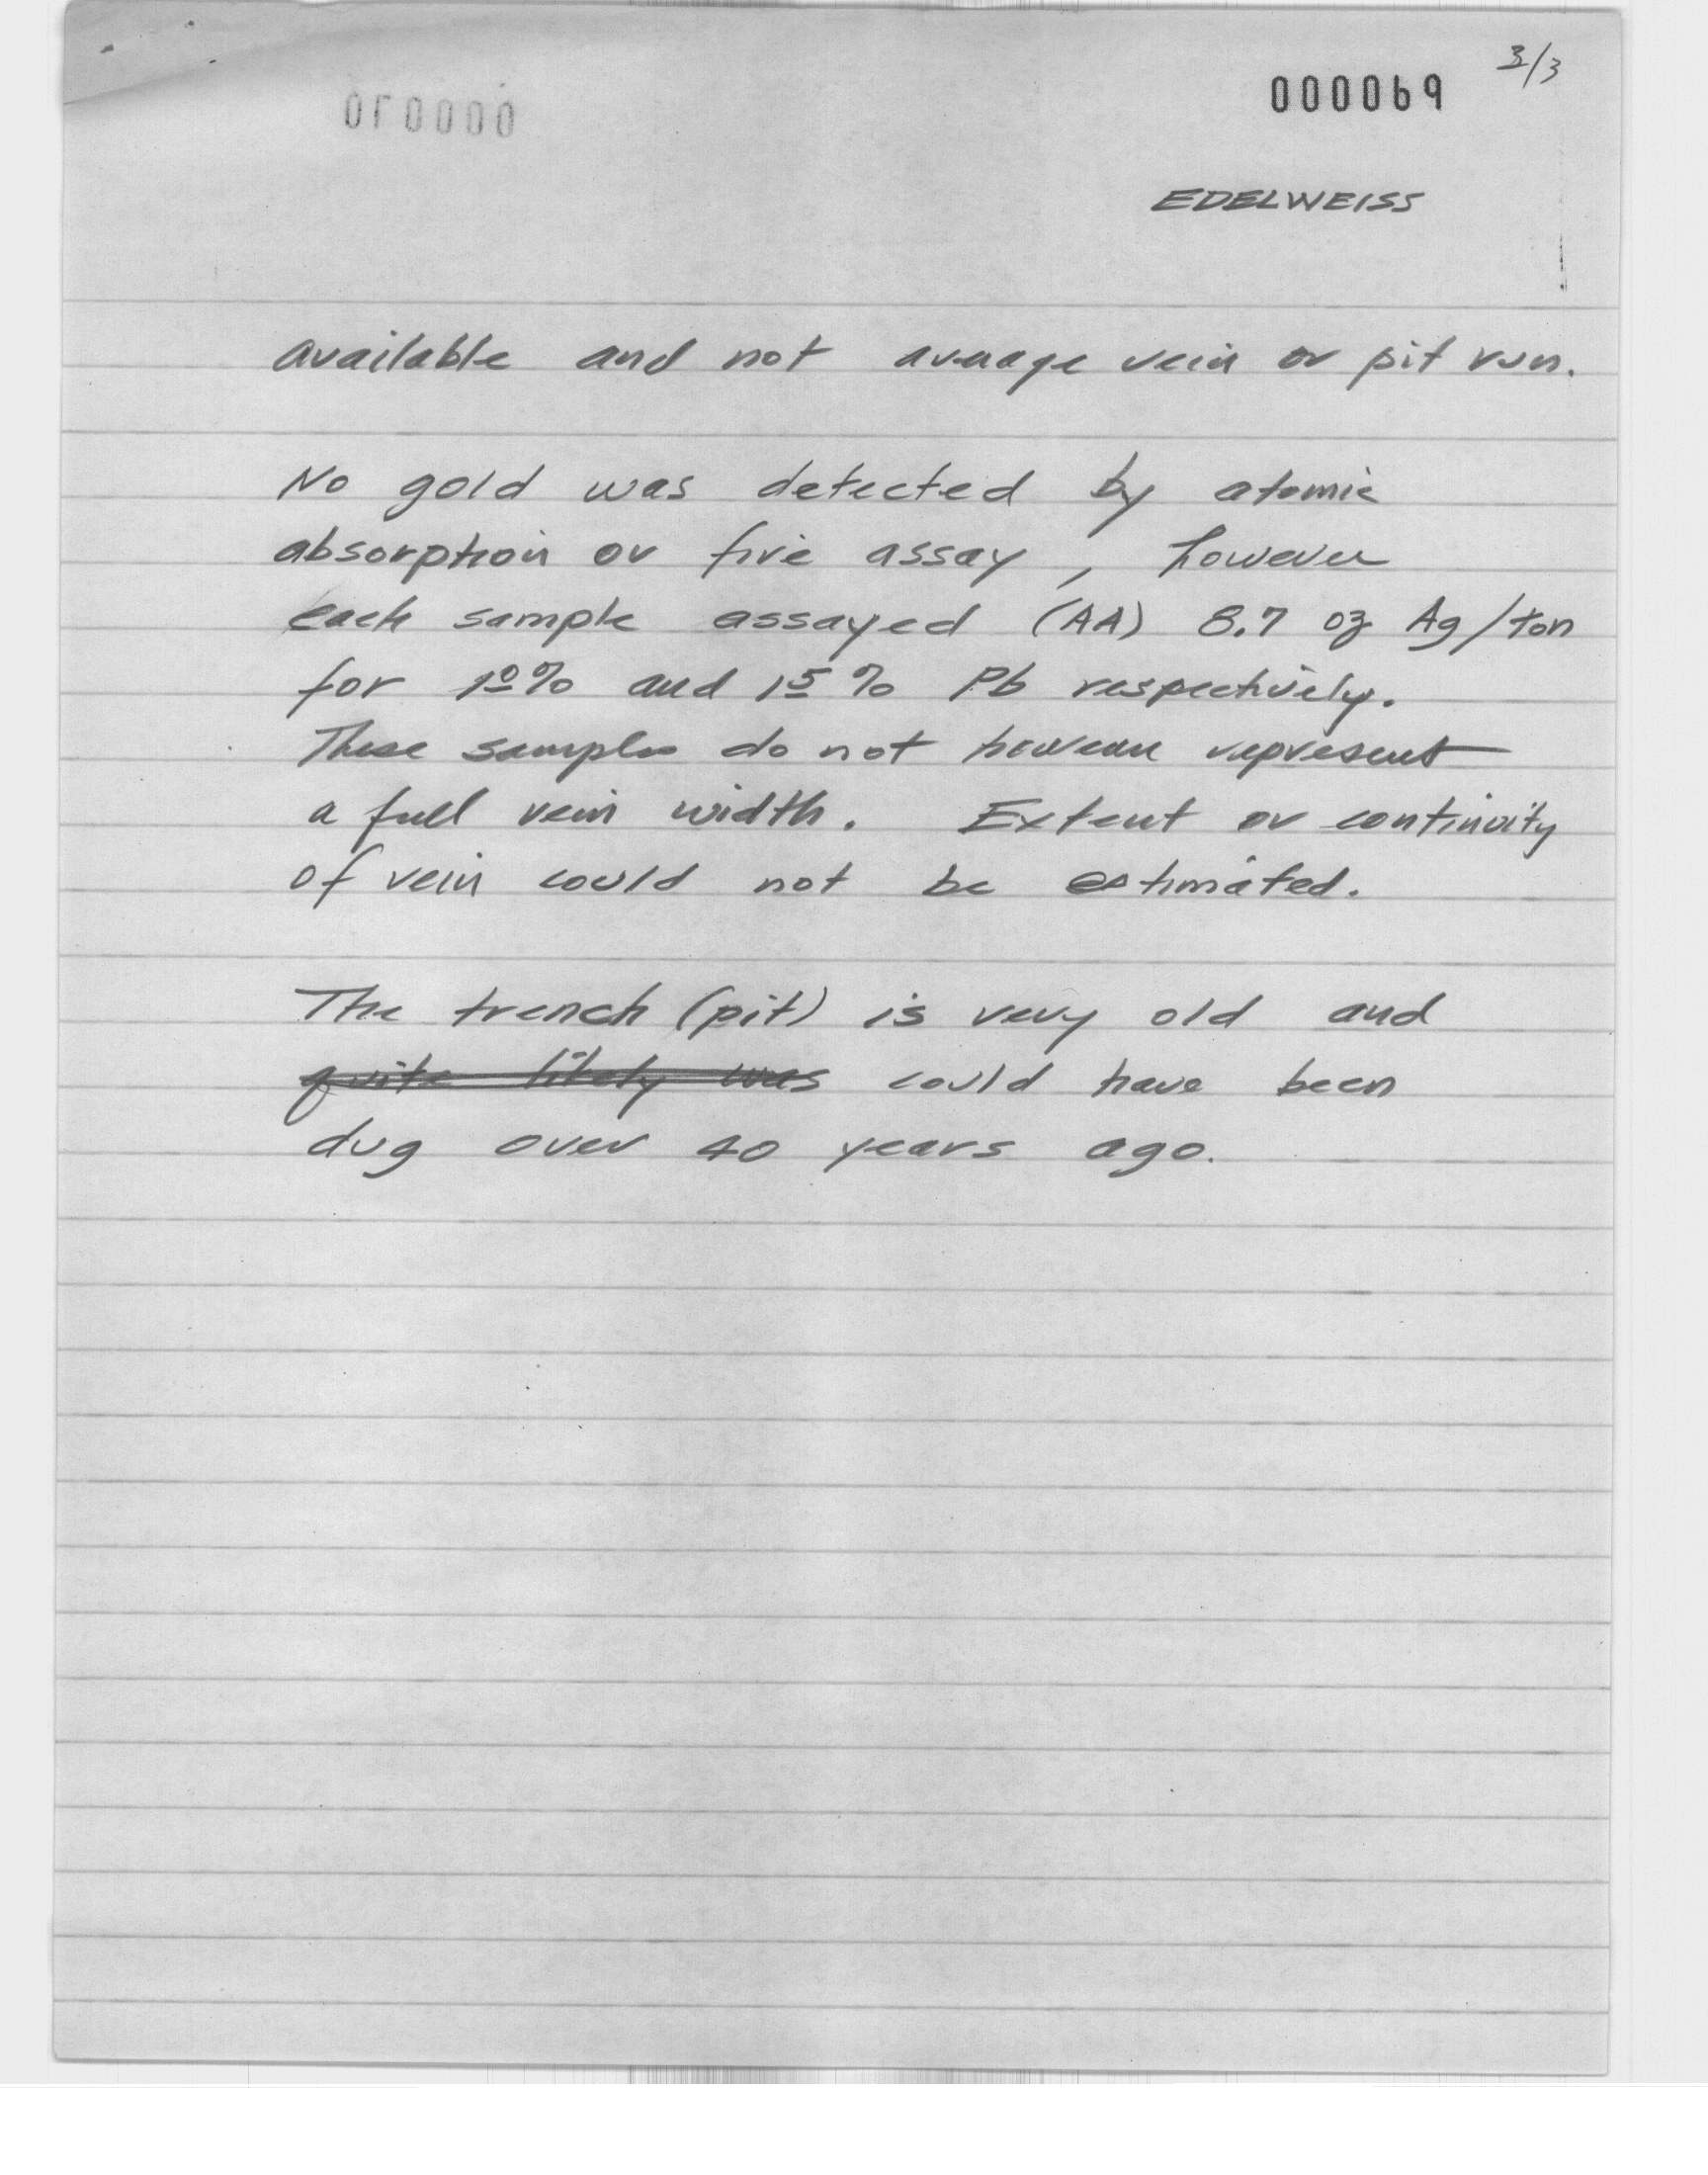 3/3
000069
000070
EDELWEISS
available and not average vein or pit run.
No gold was detected by atomic
absorption or fire assay, however
each sample assayed (AA) 8.7 oz Ag/ton
for 10% and 15% Pb respectively.
These samples do not however represent
a full vein width. Extent or continuity
of vein could not be estimated.
The trench (pit) is very old and
quite likely was could have been
dug over 40 years ago.